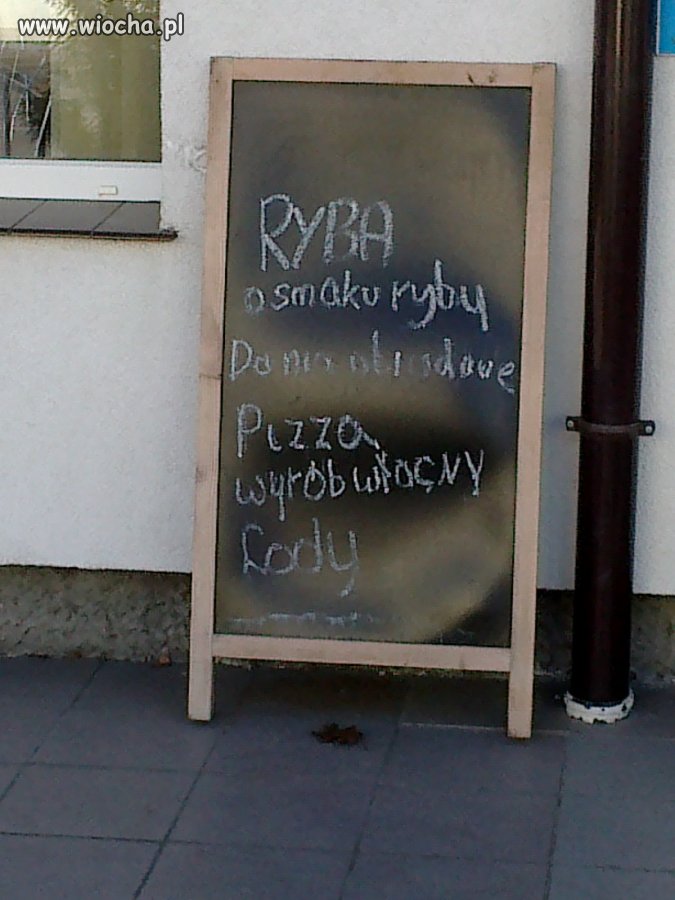 www.wiocha.pl
RYBA
o smaku ryby
Dania obiadowe
Pizza
wyrób włacny
Lody